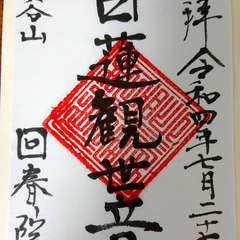 拝 令和四年七月二十
白蓮観世音
谷山 回春院